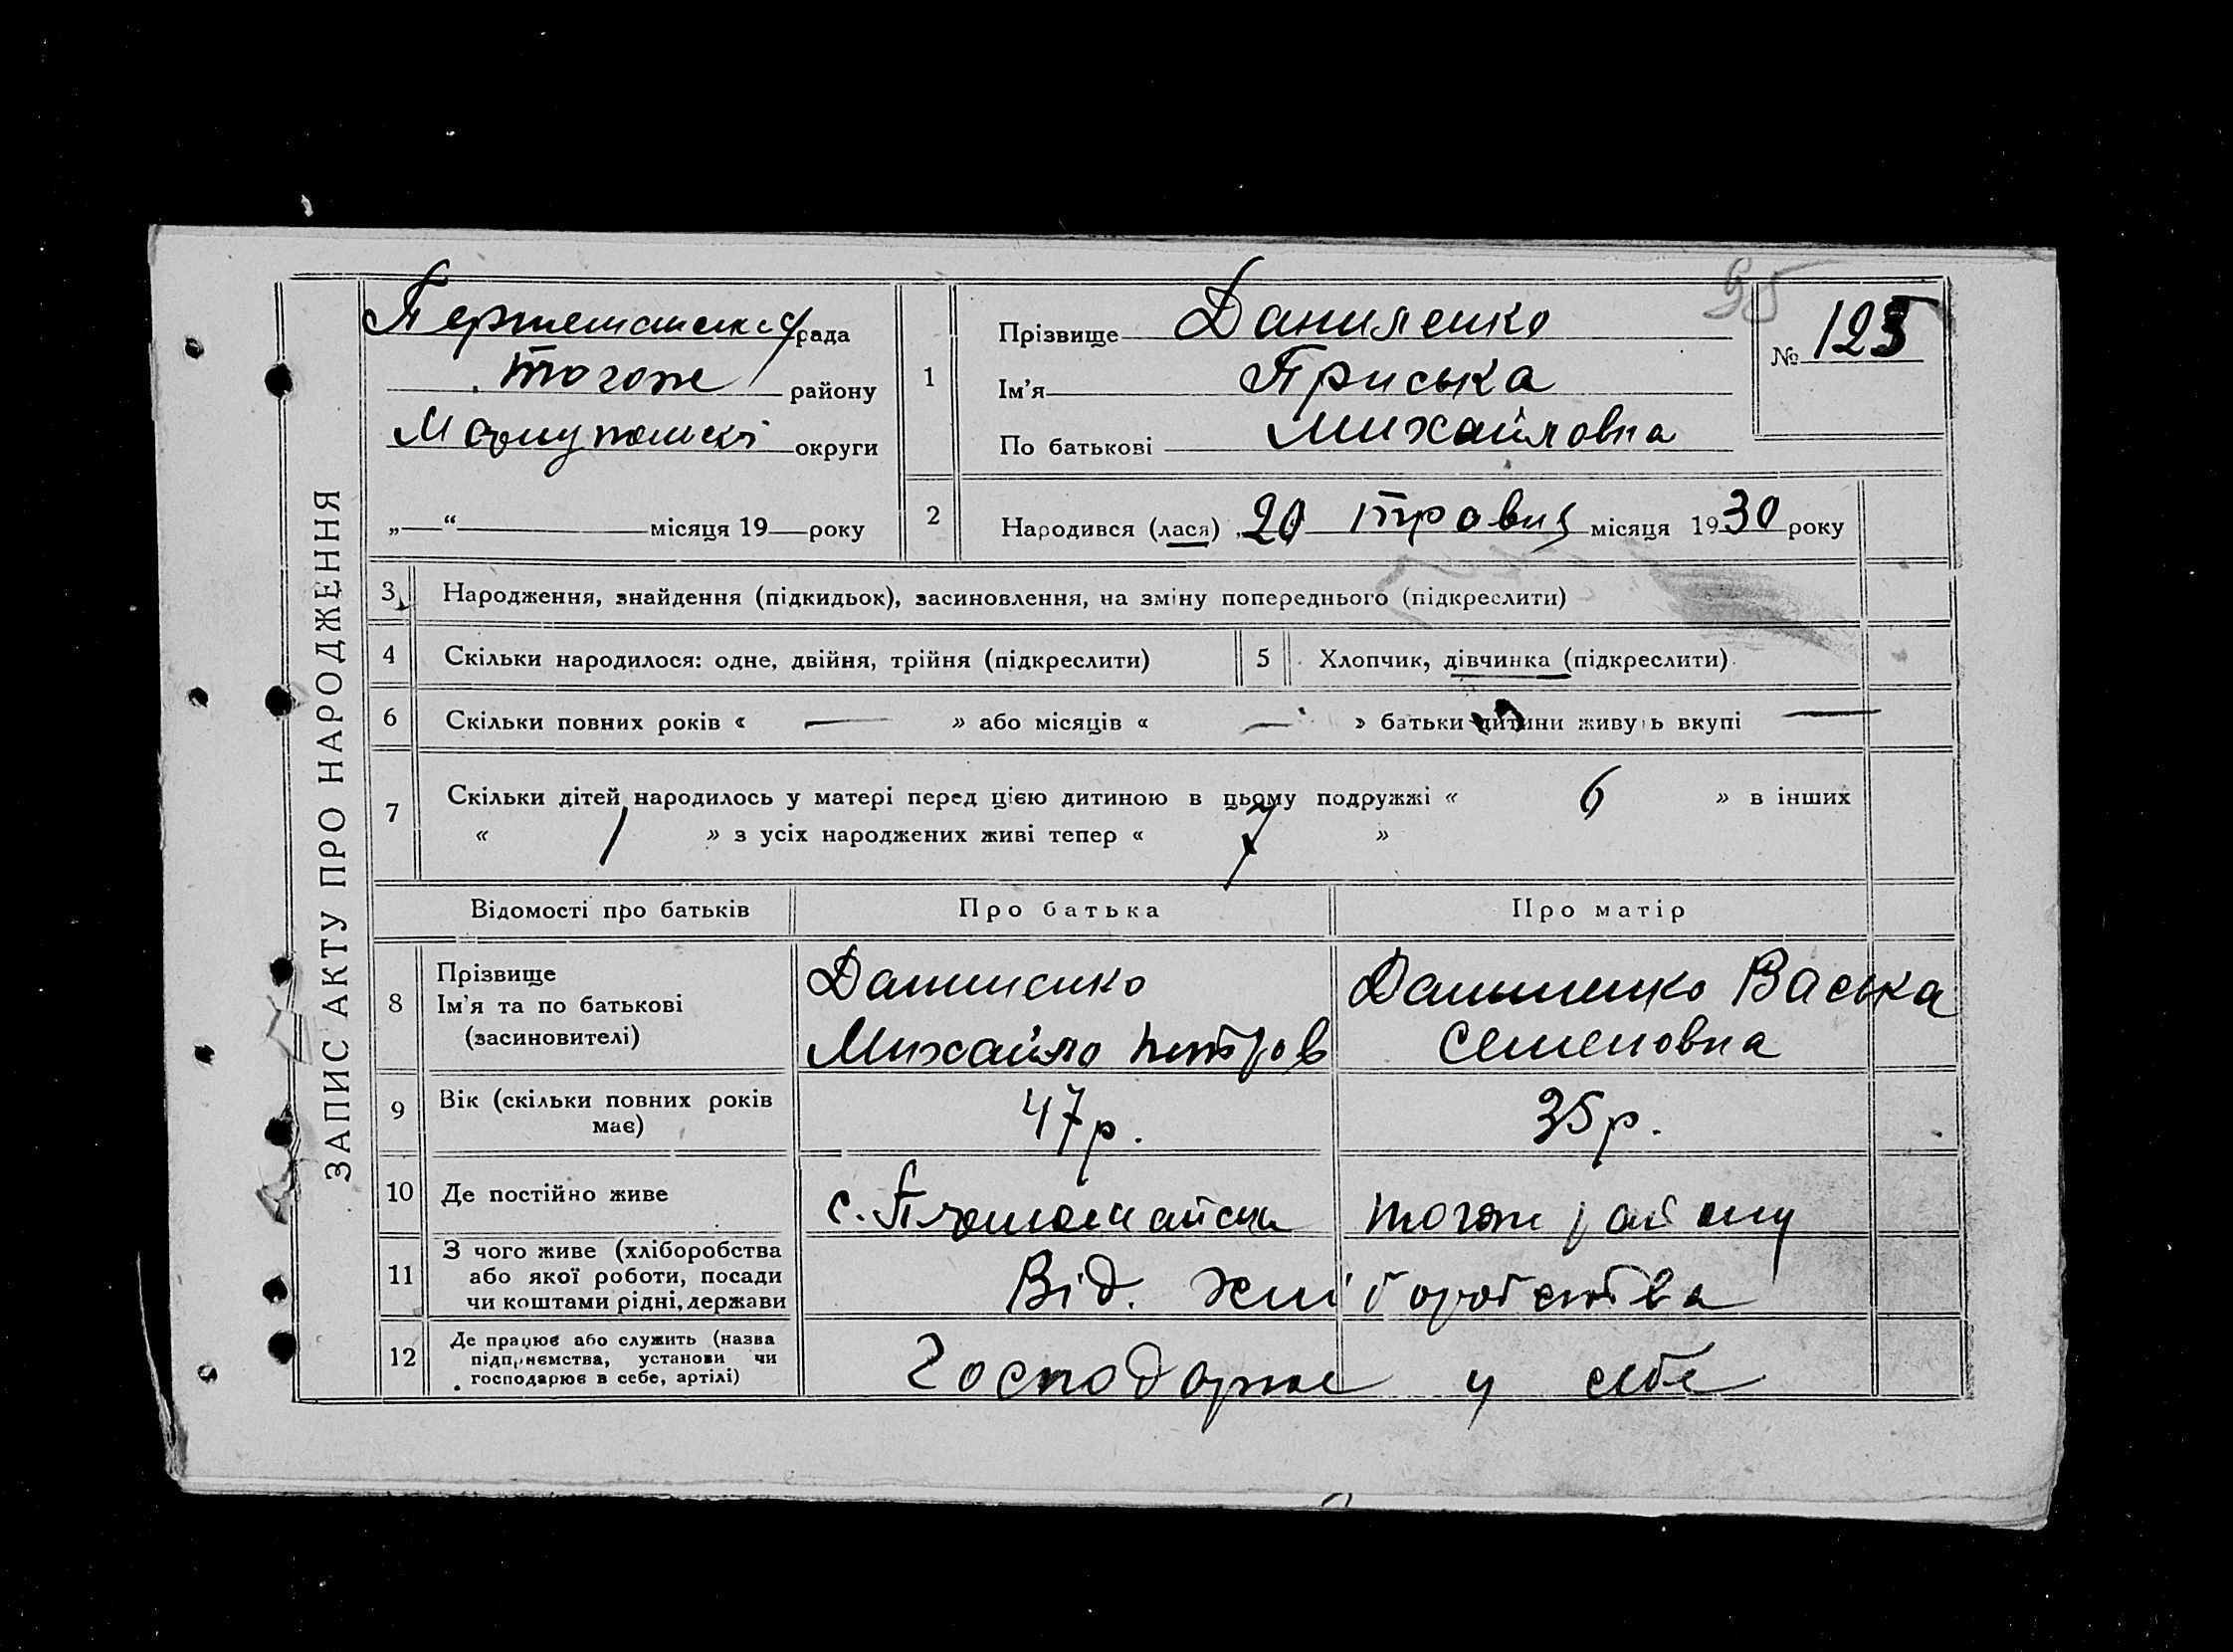 ЗАПИС АКТУ ПРО НАРОДЖЕННЯ
рада
тогоже району
округи
„—“ місяця 19— року
95
№ 125
1
Прізвище Даниленко
Ім’я Приська
По батькові Михайловна
2 Народився (лася) „20 травня місяця 1930 року
3 Народження, знайдення (підкидьок), засиновлення, на зміну попереднього (підкреслити)
4 Скільки народилося: одне, двійня, трійня (підкреслити)
5 Хлопчик, дівчинка (підкреслити)
6 Скільки повних років « — » або місяців « — » батьки дитини живуть вкупі —
7 Скільки дітей народилось у матері перед цією дитиною в цьому подружжі « 6 » в інших
« / » з усіх народжених живі тепер « 7 »
Відомості про батьків Про батька Про матір
8 Прізвище
Ім’я та по батькові
(засиновителі)
Даниленко
Михайло Петров
Даниленко Васька
Семеновна
9 Вік (скільки повних років
має)
47р.
35р.
10 Де постійно живе
с. тогож району
11 З чого живе (хліборобства
або якої роботи, посади
чи коштами рідні, держави
Від. хліборобства
12 Де працює або служить (назва
підприємства, установи чи
господарює в себе, артілі)
Господарює у себе